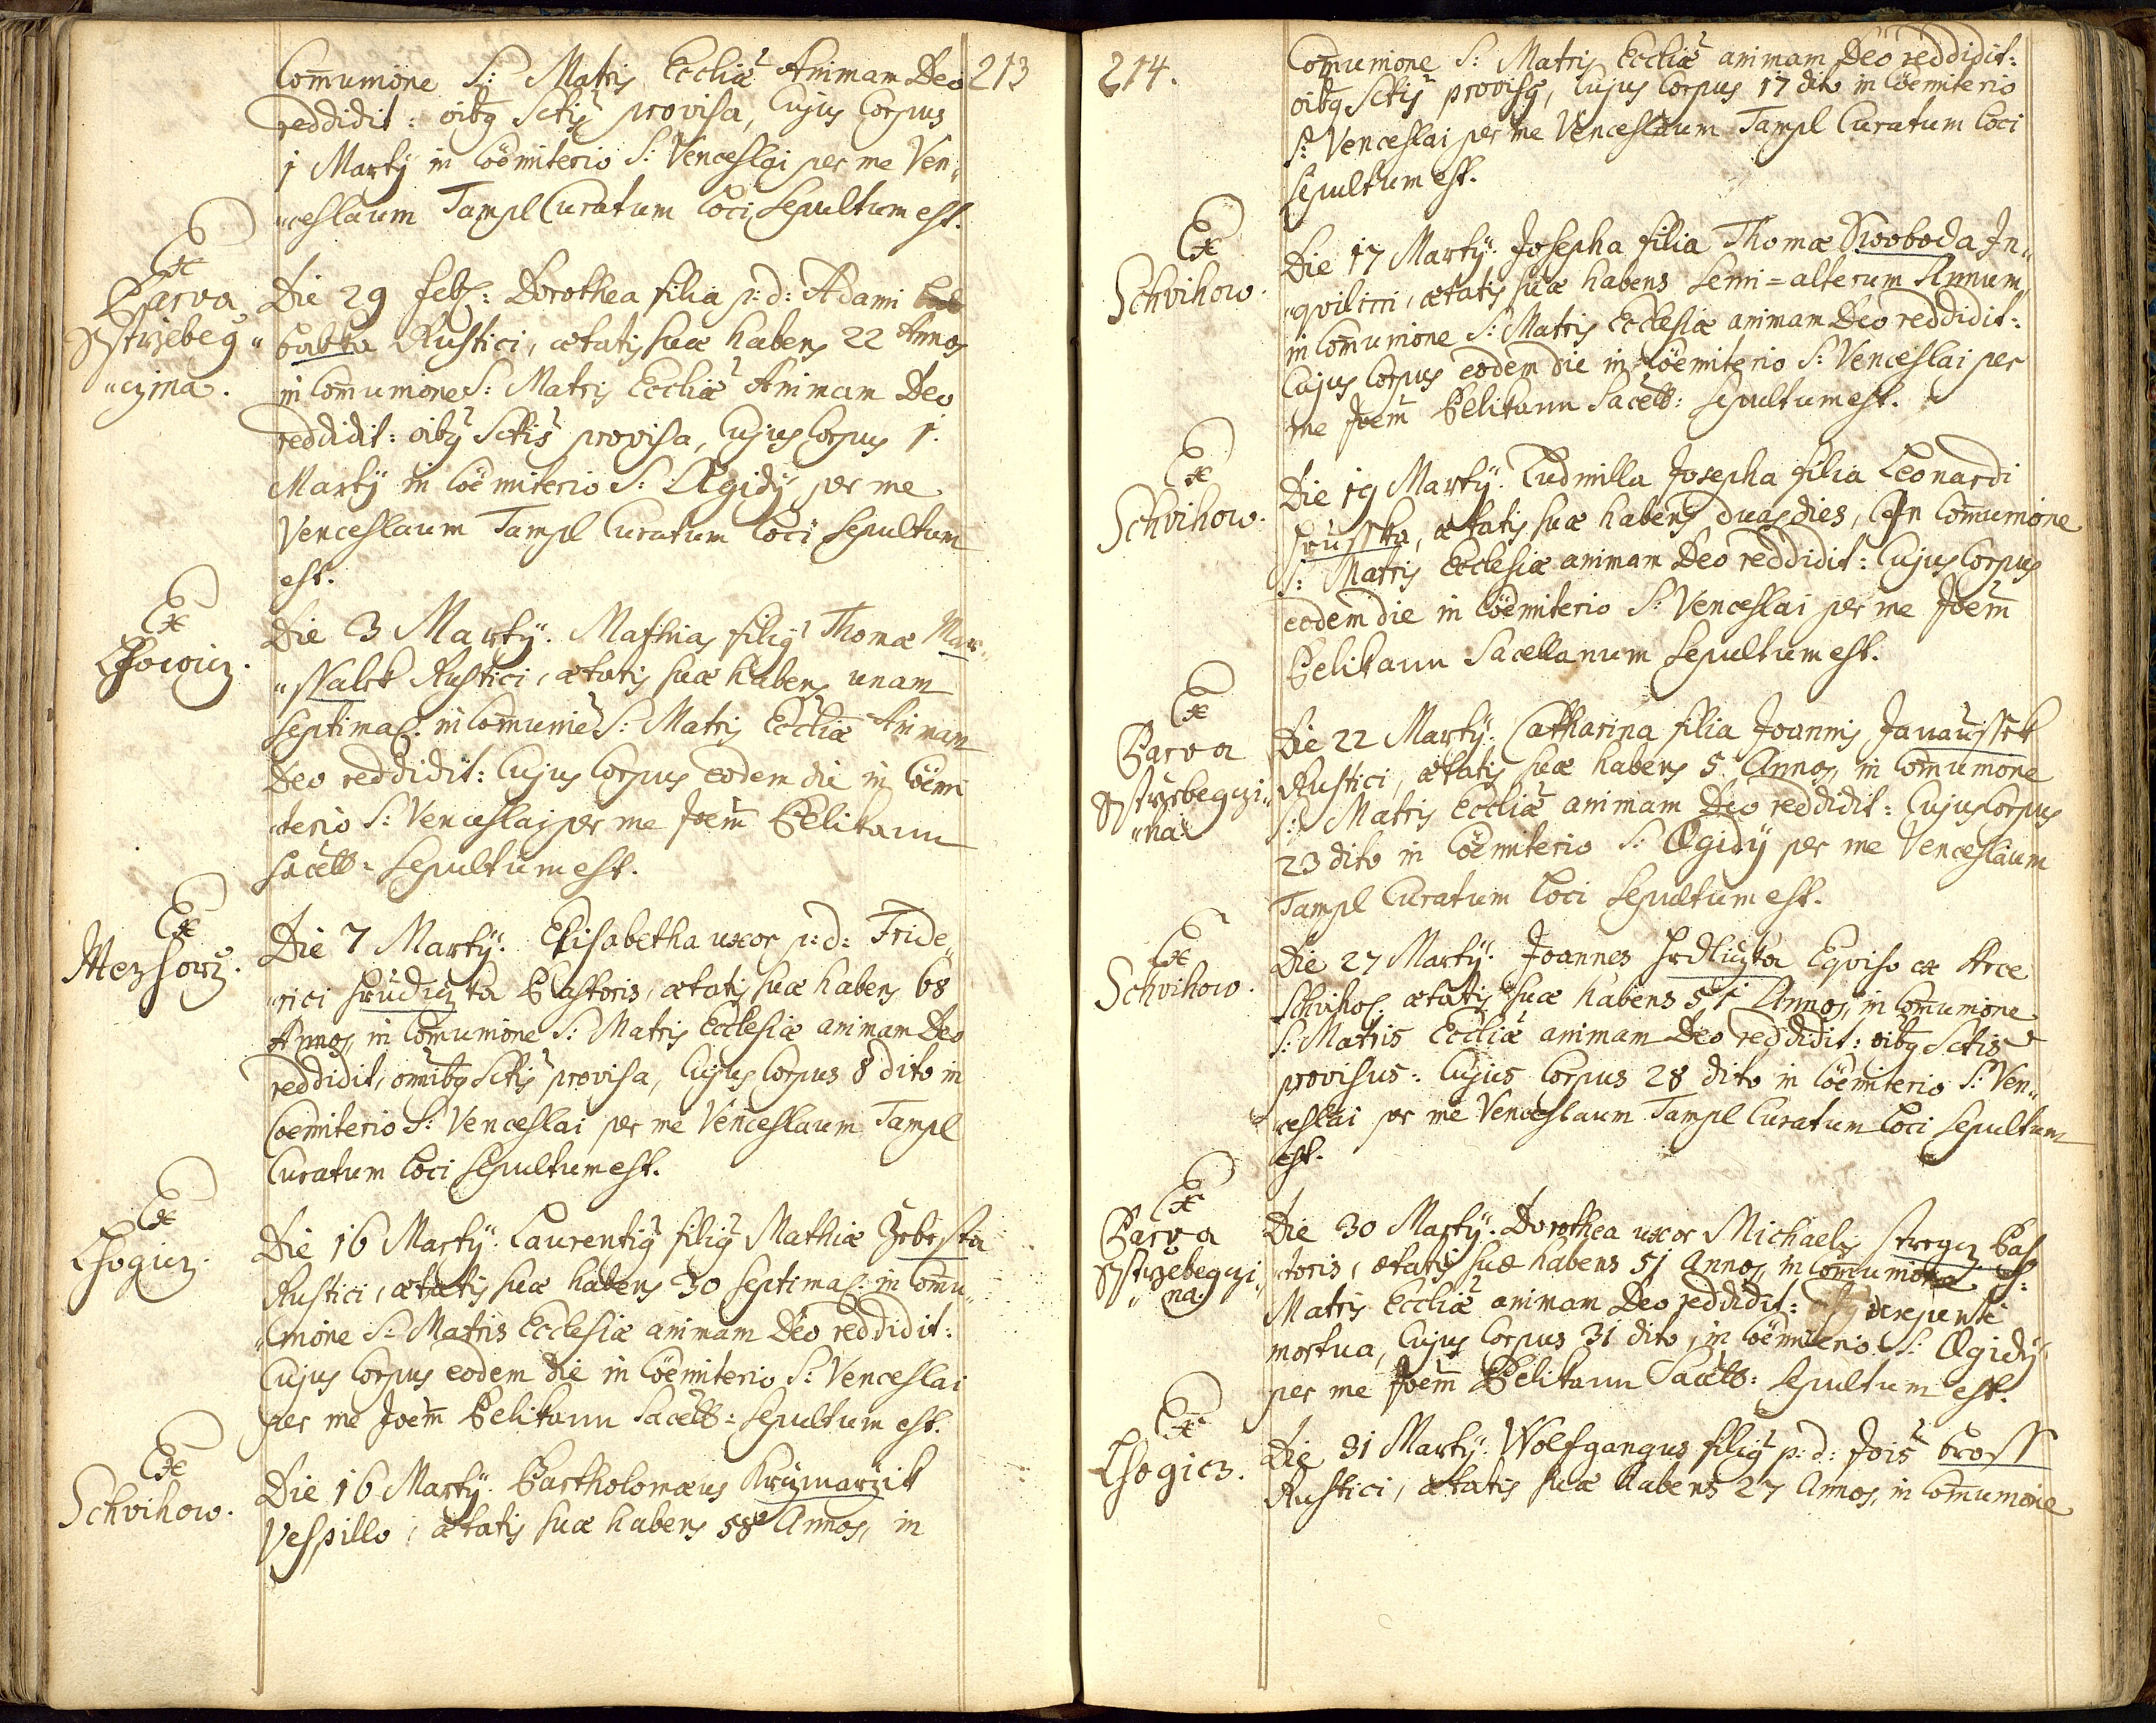 213
Com̄unione S: Matris Eccliæ Animam Deo
reddidit: oibq Sctis provisa, Cujus Corpus
1 Martÿ in Cöemiterio S: Venceslai per me Ven„
„ceslaum Tampl Curatum Loci Sepultum est.
Ex
Parva
Strzebeg„
„czina.
Die 29 Feb: Dorothea filia p: d: Adami
babka Rustici, ætatis suæ habens 22 Annos
in Com̄unione S: Matris Eccliæ Animam Deo
reddidit: oibq Sctis provisa, Cujus Corpus 1.
Martÿ in Cöemiterio S: Ægidÿ per me
Venceslaum Tampl Curatum Loci Sepultum
est.
Ex
Lhowicz.
Die 3 Martÿ. Mathias filiq Thomæ Mar„
„ssalek Rustici, ætatis suæ habens unam
Septima: in Com̄unie S: Matris Eccliæ Animam
Deo reddidit: Cujus Corpus eodem die in Cöemi
„terio S: Venceslai per me Joem̄ Pelikann
Sacell: Sepultum est.
Ex
Mezhorz.
Die 7 Martÿ. Elisabetha uxor p: d: Fride„
„rici hrudiczka Pastoris, ætatis suæ habens 68
Annos, in Com̄unione S: Matris Ecclesiæ animam Deo
reddidit, omibq Sctis provisa, Cujus Corpus 8 dito in
Coemiterio S: Venceslai per me Venceslaum Tampl
Curatum Loci Sepultum est.
Ex
Lhogicz.
Die 16 Martÿ. Laurentiq filiq Mathiæ Zrbeska
Rustici, ætatis suæ habens 30 septima: in Com̄u„
„nione S: Matris Ecclesiæ animam Deo reddidit:
Cujus Corpus eodem die in Cöemiterio S: Venceslai
per me Joem̄ Pelikann Sacell: Sepultum est.
Ex
Schvihow.
Die 16 Martÿ. Bartholomæus Krzmarzik
Vespillo, ætatis suæ habens 58 Annos, in
214.
Com̄unione S: Matris Eccliæ animam Deo reddidit:
oibq Sctis provisq, Cujus Corpus 17 dito in Cöemiterio
S: Venceslai per me Venceslaum Tampl Curatum Loci
Sepultum est.
Ex
Schvihow.
Die 17 Martÿ. Josepha filia Thomæ Swoboda In„
„qvilini, ætatis suæ habens Semi=alterum Annum,
in Com̄unione S: Matris Ecclesiæ animam Deo reddidit:
Cujus Corpus eodem die in Cöemiterio S: Venceslai per
me Joem̄ Pelikann Sacell: Sepultum est.
Ex
Schvihow.
Die 19 Martÿ. Ludmilla Josepha filia Leonardi
hrusska, ætatis suæ habens duas dies, In Com̄unione
S: Matris Ecclesiæ animam Deo reddidit: Cujus Corpus
eodem die in Cöemiterio S: Venceslai per me Joem̄
Pelikann Sacellanum Sepultum est.
Ex
Parva
Strzebegczi„
„na
Die 22 Martÿ. Catharina filia Joannis Janaussek
Rustici, ætatis suæ habens 5 Annos, in Com̄unione
S: Matris Eccliæ animam Deo reddidit: Cujus Corpus
23 dito in Cöemiterio S: Ægidÿ per me Venceslaum
Tampl Curatum Loci Sepultum est.
Ex
Schvihow.
Die 27 Martÿ. Joannes hrdliczka Eqviso ex Arce
Schviho: ætatis suæ habens 51 Annos, in Com̄unione
S: Matris Eccliæ animam Deo reddidit: oibq Sctis
provisus: Cujus Corpus 28 dito in Cöemiterio S: Ven„
„ceslai per me Venceslaum Tampl Curatum Loci Sepultum
est.
Ex
Parva
Strzebegczi„
„na.
Die 30 Martÿ. Dorothea uxor Michaelis Pas
„toris, ætatis suæ habens 51 Annos, in Com̄unione S:
Matris Eccliæ animam Deo reddidit: derepente
mortua, Cujus Corpus 31 dito, in Cöemiterio S: Ægidÿ
per me Joem̄ Pelikann Sacell: Sepultum est.
Ex
Lhogicz.
Die 31 Martÿ. Wolfgangus filiq p: d: Jois bross
Rustici, ætatis suæ habens 27 Annos, in Com̄unione